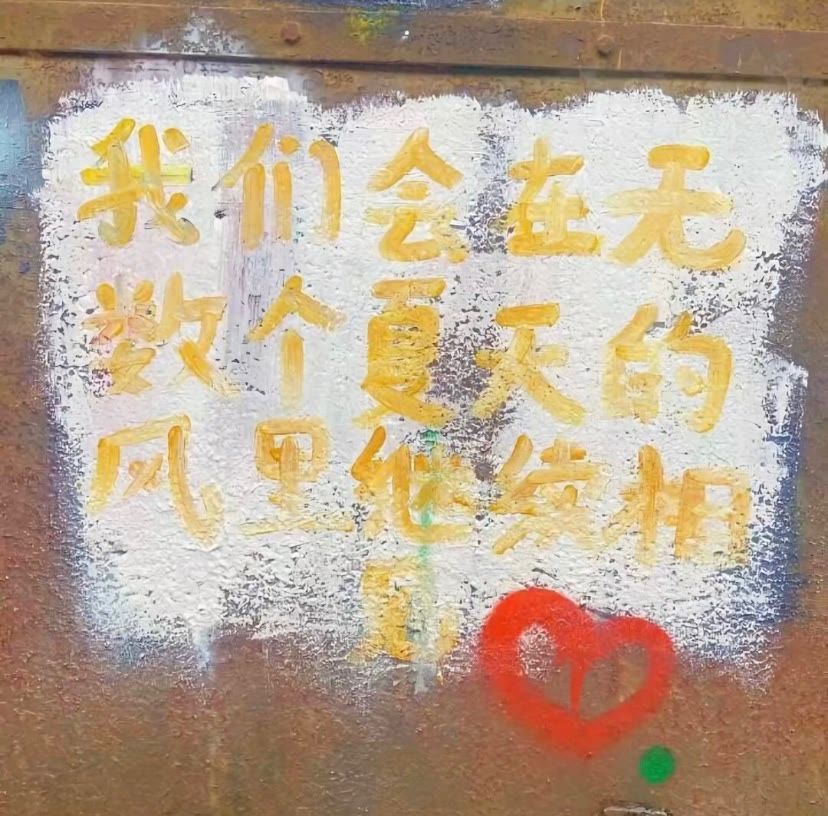 我们会在无
数个夏天的
风里继续相
见